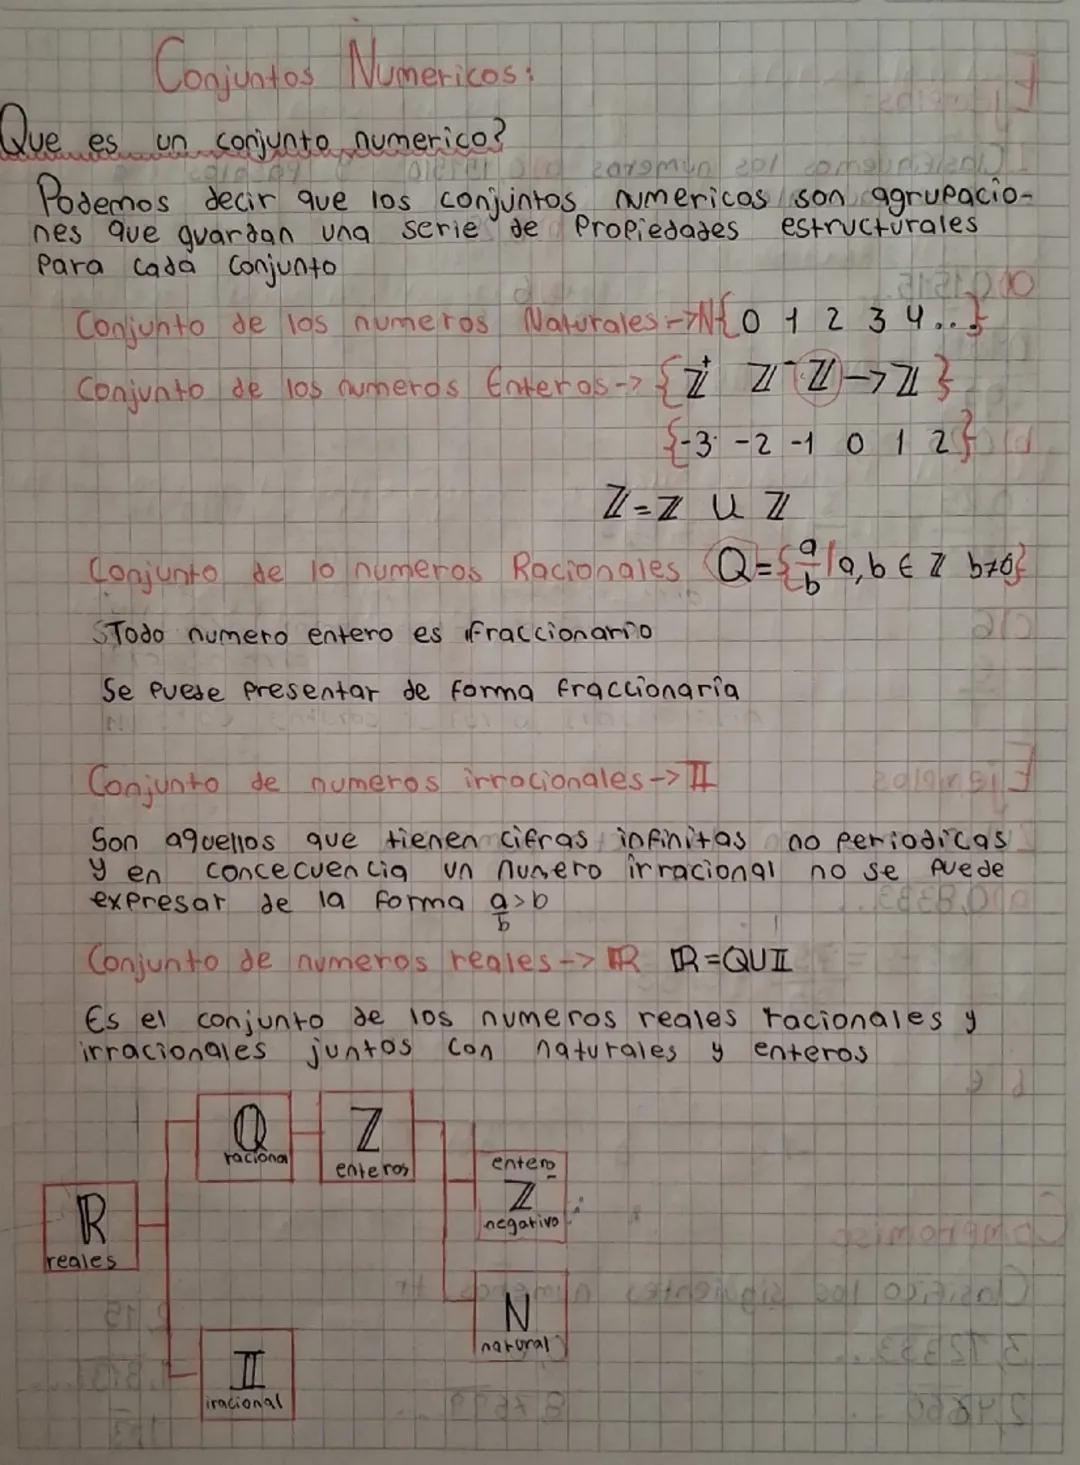 Conjuntos Numericos:
Que es un conjunto numerico?
Podemos decir que los conjuntos numericos son agrupacio-
nes que guardan una serie de Propiedades estructurales
Para cada conjunto
Conjunto de los numeros Naturales->N{0 1 2 3 4...}
Conjunto de los numeros Enteros->{ℤ⁺ ℤ⁻ ℤ->ℤ}
{-3 -2 -1 0 1 2}
ℤ=ℤ U ℤ
Conjunto de lo numeros Racionales Q={a/b / a,b ∈ ℤ b≠0}
Todo numero entero es fraccionario
Se puede Presentar de forma fraccionaria
Conjunto de numeros irracionales->𝕀
Son aquellos que tienen cifras infinitas no Periodicas
y en concecuencia un numero irracional no se Puede
expresar de la forma a/b>b
Conjunto de numeros reales->ℝ ℝ=QU𝕀
Es el conjunto de los numeros reales racionales y
irracionales juntos con naturales y enteros
Q
raciona
Z
enteros
entero
Z
negativo
ℝ
reales
N
natural
𝕀
iracional